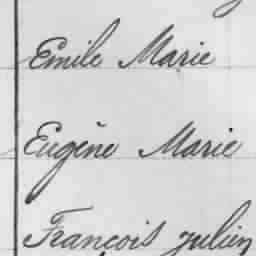 Emile Marie
Eugène Marie
François Julien